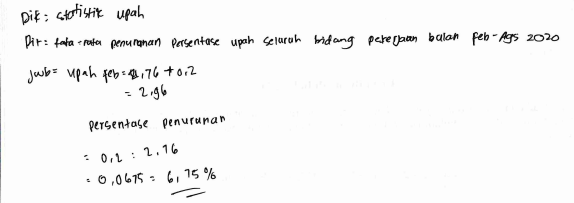 Dik : statistik upah
Dit = rata-rata penurunan persentase upah seluruh bidang pekerjaan bulan feb-Ags 2020
Jwb = upah feb = 2,76 + 0,2
= 2,96
persentase penurunan
= 0,2 : 2,96
= 0,0675 = 6,75 %